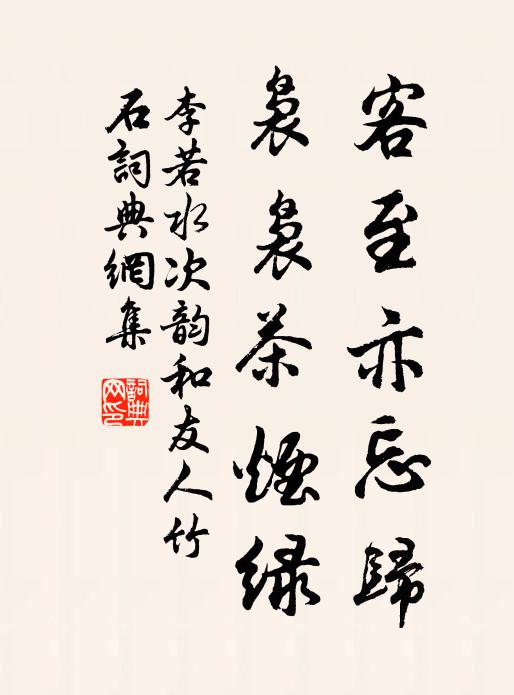 客至亦忘歸
裊裊茶煙綠
李若水次韵和友人竹
石詞典網集
詞典
网印